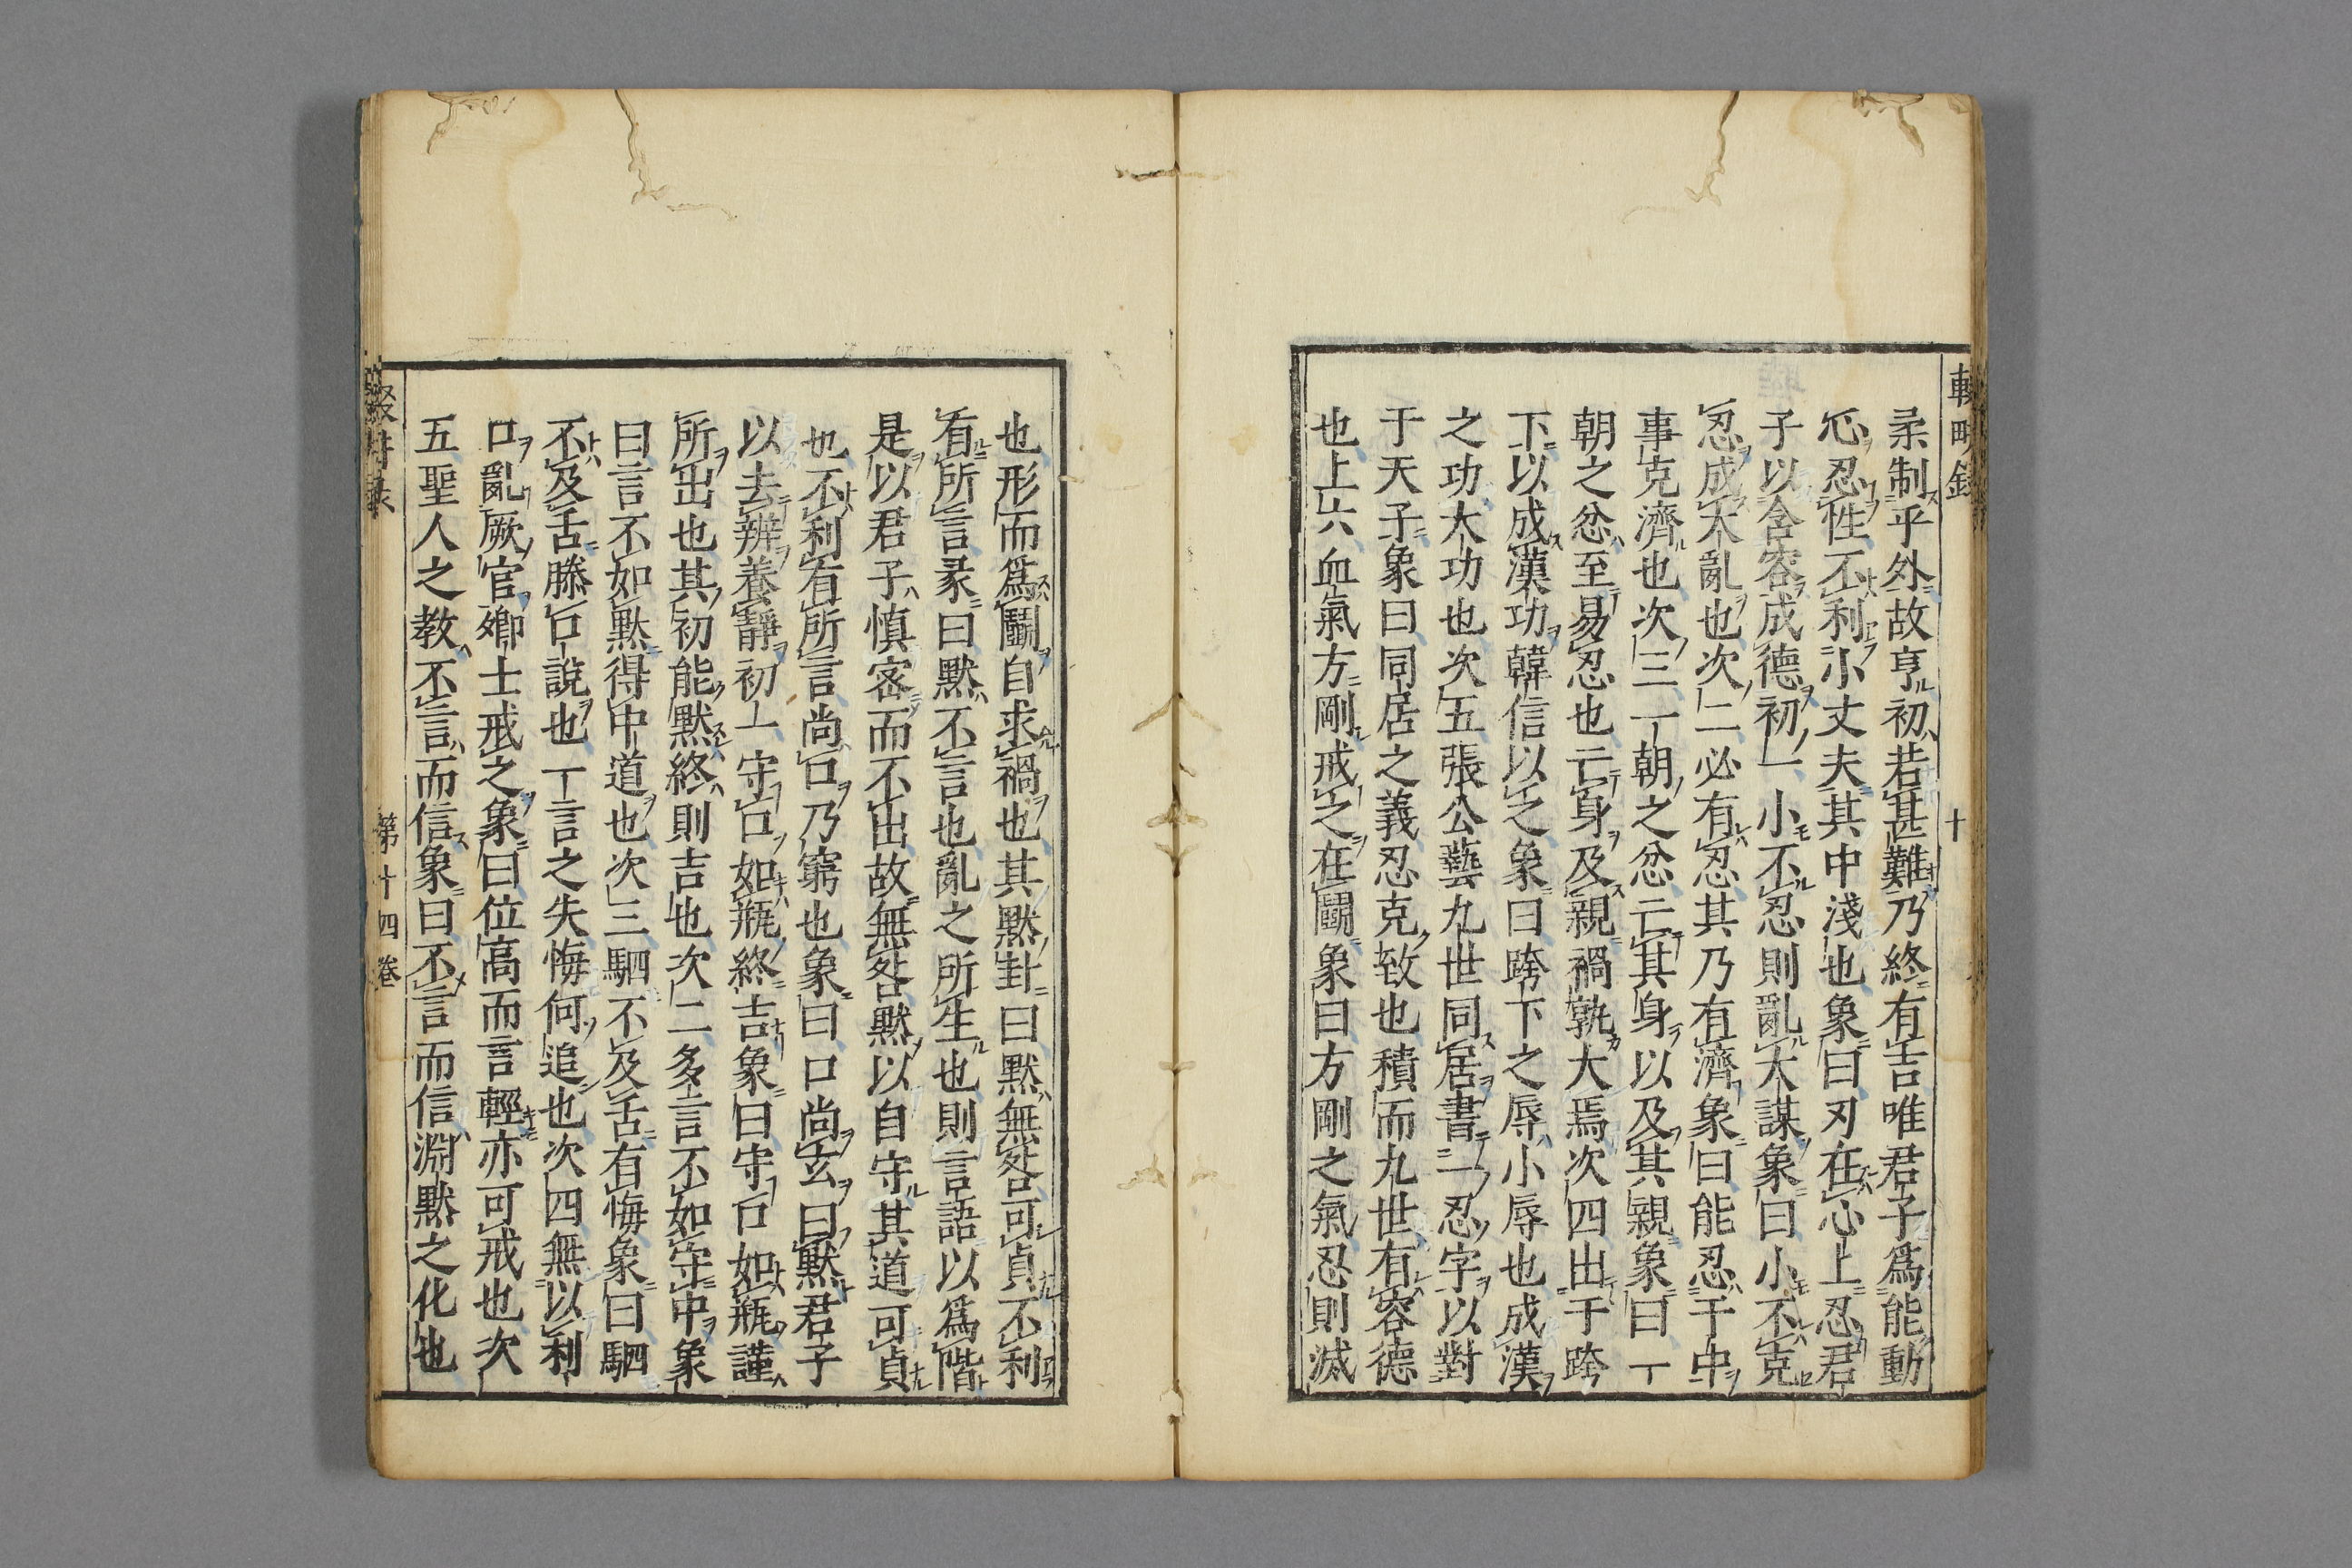 輟畊錄 十
柔制乎外故亨初若甚難乃終有吉唯君子爲能動
心忍性不利小丈夫其中淺也象曰刃在心上忍君
子以含容成德初一小不忍則亂大謀象曰小不克
忍成大亂也次二必有忍其乃有濟象曰能忍于中
事克濟也次三一朝之忿亡其身以及其親象曰一
朝之忿至易忍也亡身及親禍孰大焉次四出于跨
下以成漢功韓信以之象曰跨下之辱小辱也成漢
之功大功也次五張公藝九世同居書一忍字以對
于天子象曰同居之義忍克致也積而九世有容德
也上六血氣方剛戒之在鬭象曰方剛之氣忍則滅
也形而爲鬭自求禍也其默卦曰默無咎可貞不利
有所言彖曰默不言也亂之所生也則言語以爲階
是以君子愼密而不出故無咎默以自守其道可貞
也不利有所言尚口乃窮也象曰口尚玄曰默君子
以去辨養靜初一守口如瓶終吉象曰守口如瓶謹
所出也其初能默終則吉也次二多言不如守中象
曰言不如默得中道也次三駟不及舌有悔象曰駟
不及舌滕口說也一言之失悔何追也次四無以利
口亂厥官鄕士戒之象曰位高而言輕亦可戒也次
五聖人之教不言而信象曰不言而信淵默之化也
第十四卷